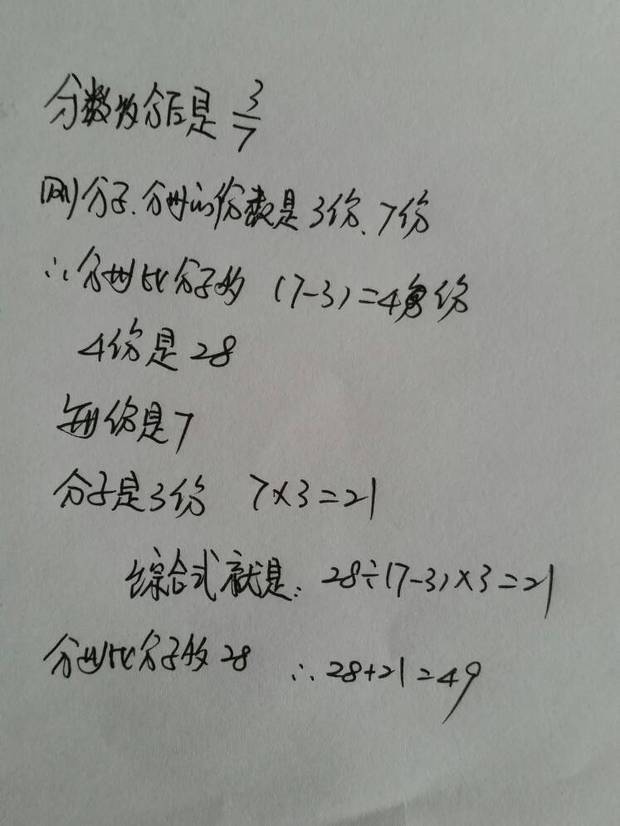 分数约分后是 3/7
则分子、分母的份数是3份、7份
∴分母比分子多 (7-3)=4份
4份是28
每份是7
分子是3份 7×3=21
综合式就是: 28÷(7-3)×3=21
分母比分子多28 ∴28+21=49